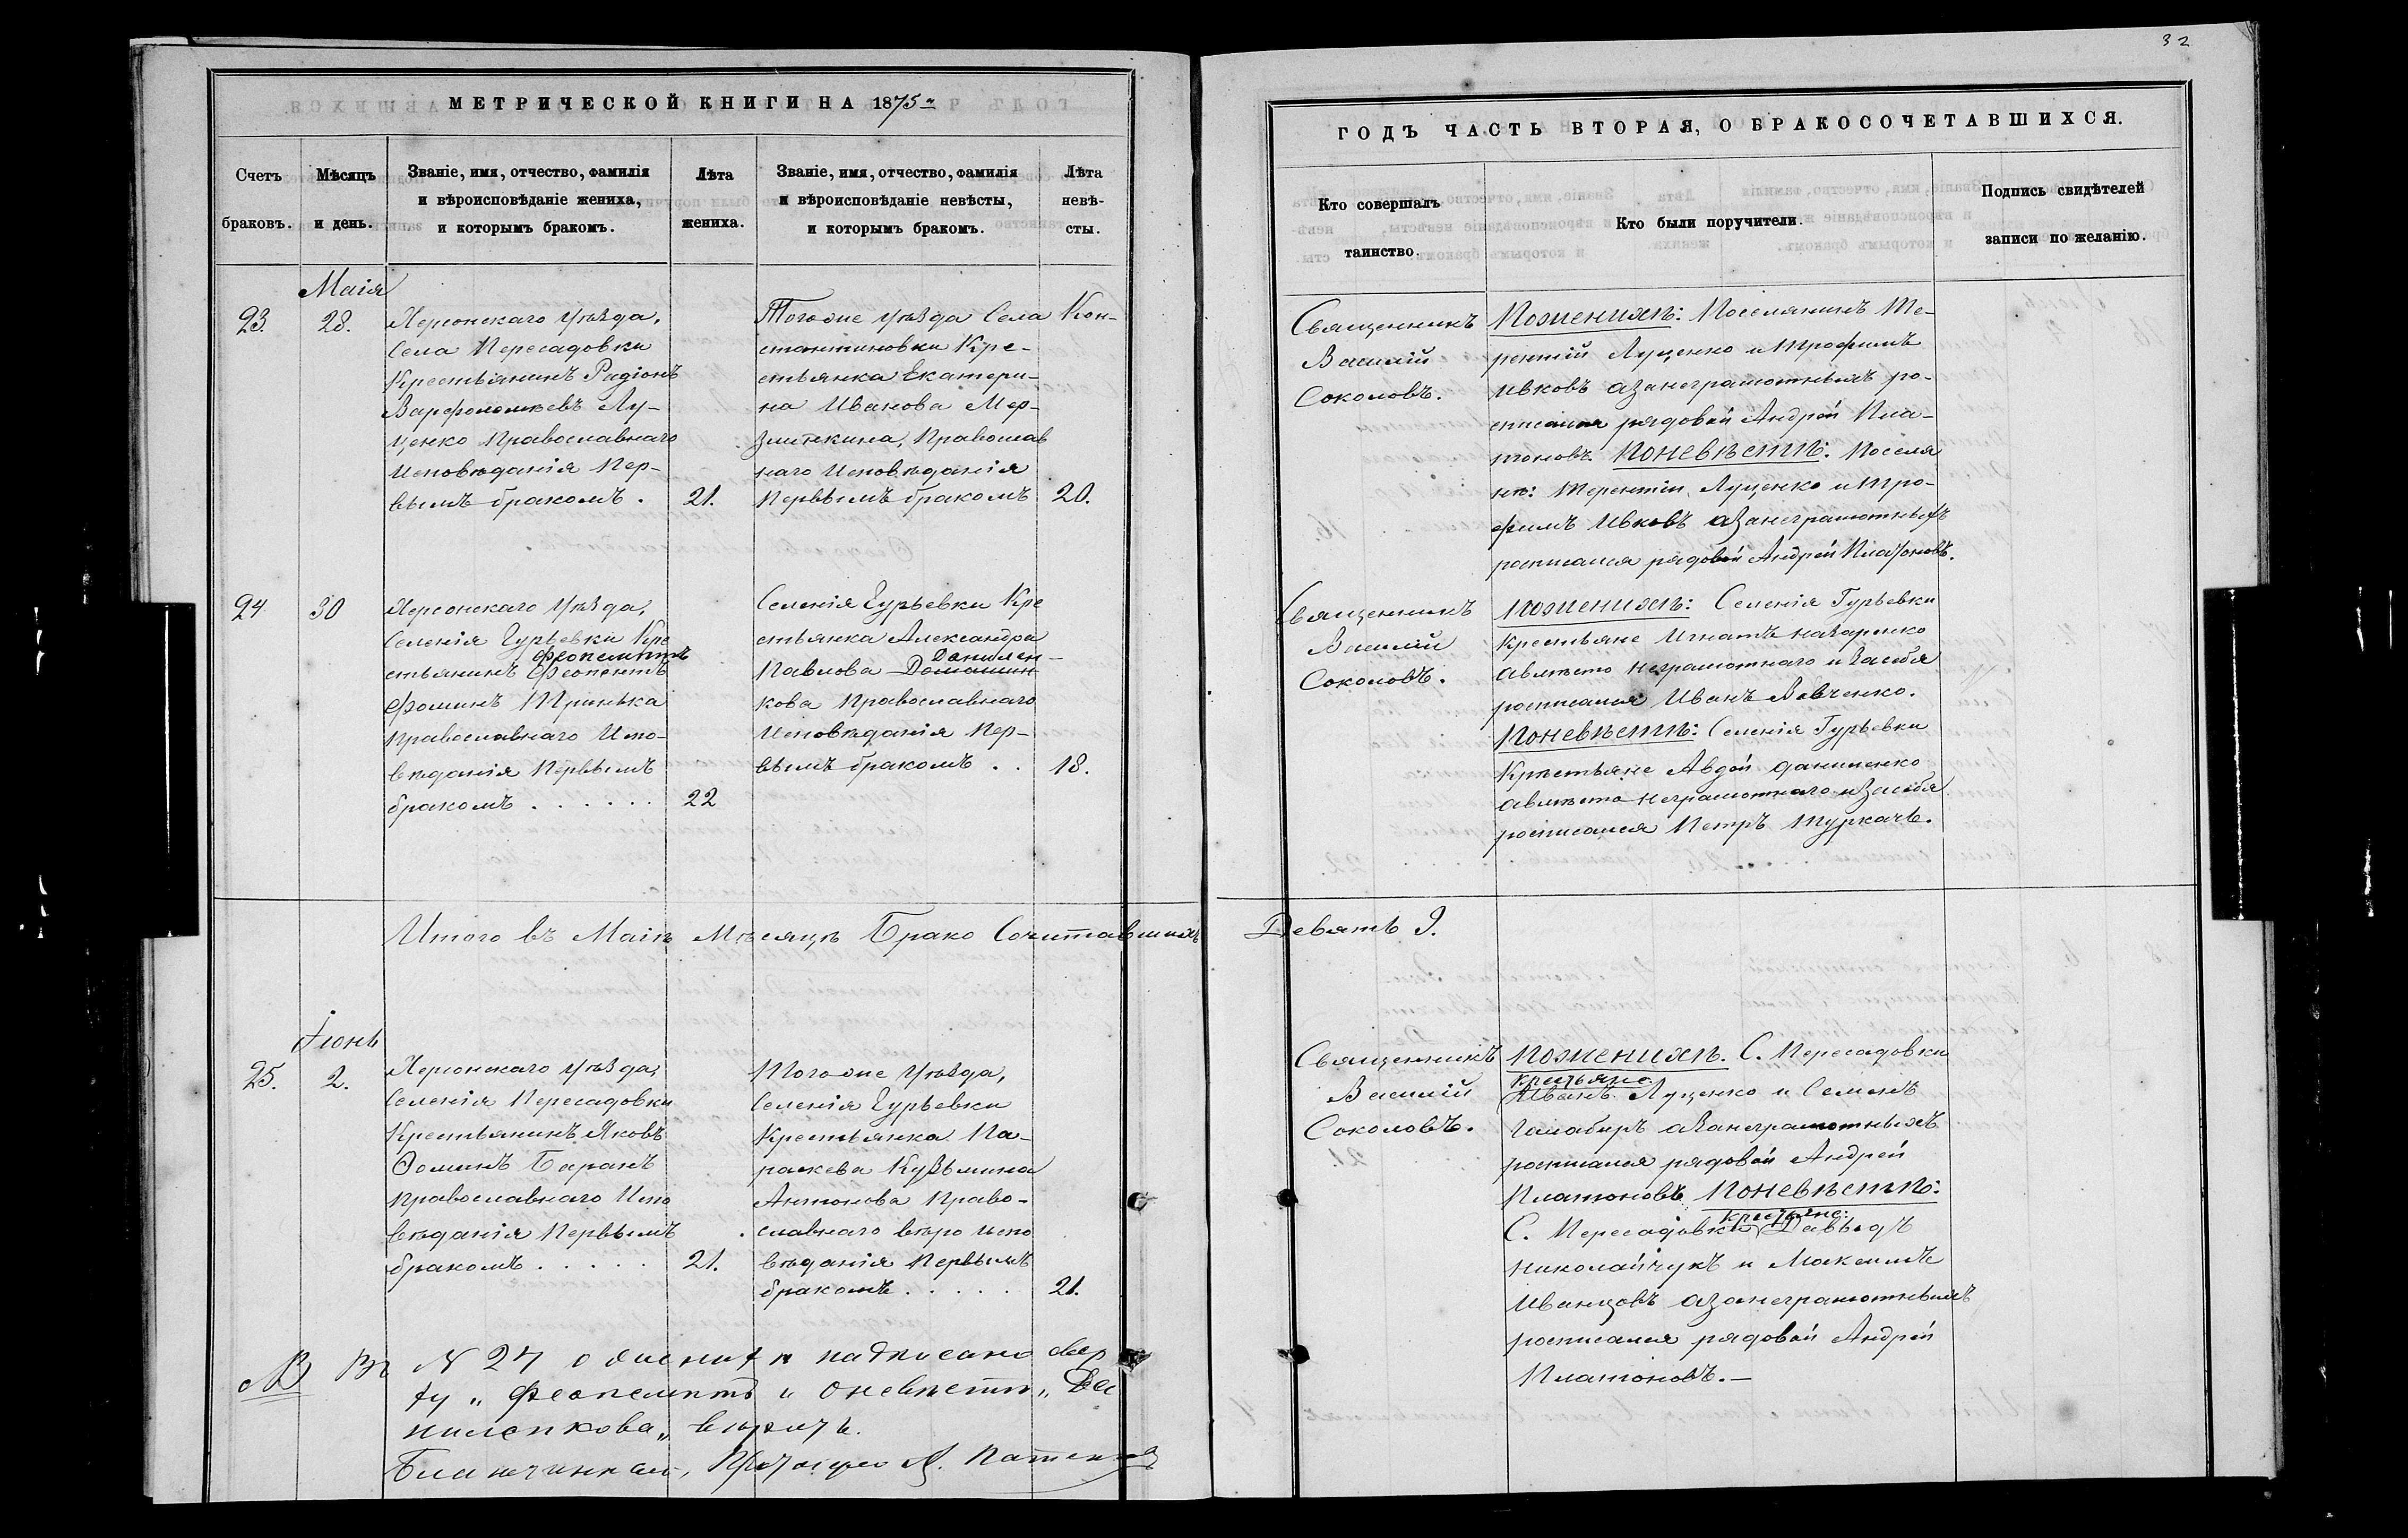 32
МЕТРИЧЕСКОЙ КНИГИ НА 1875 г
ГОДЪ ЧАСТЬ ВТОРАЯ, О БРАКОСОЧЕТАВШИХСЯ.
Счетъ
браковъ.
Мѣсяцъ
и день.
Званіе, имя, отчество, фамилія
и вѣроисповѣданіе жениха,
и которымъ бракомъ.
Лѣта
жениха.
Званіе, имя, отчество, фамилія
и вѣроисповѣданіе невѣсты,
и которымъ бракомъ.
Лѣта
невѣ-
сты.
Кто совершалъ
таинство.
Кто были поручители.
Подпись свидѣтелей
записи по желанію.
Маія
23.
28.
Херсонскаго уѣзда,
Села Пересадовки
Крестьянинъ Радіонъ
Варфоломеевъ Лу-
ценко Православнаго
Исповѣданія Пер-
вымъ бракомъ.
21.
Тогоже уѣзда Села Кон-
стантиновки Кре-
стьянка Екатери-
на Иванова Мер-
Православ
наго Исповѣданія
Первымъ бракомъ
20.
Священникъ
Василій
Соколовъ.
Поженихѣ: Поселянинъ Те-
рентій Луценко и Трофимъ
Ивковъ азанеграмотныхъ ро-
списался рядовой Андрей Пла-
тоновъ. Поневѣстѣ: Поселя
не: Терентій Луценко и Тро-
фимъ Ивковъ азанеграмотныхъ
росписался рядовой Андрей Платоновъ.
24
30
Херсонскаго уѣзда,
Селенія Гурьевки Кре
Феопемптъ
стьянинъ Феопентъ
Фоминъ Тринька
Православнаго Испо-
вѣданія Первымъ
бракомъ . . . . . .
22
Селенія Гурьевки Кре
стьянка Александра
Данилен-
Павлова Домашин
кова Православнаго
Исповѣданія Пер-
вымъ бракомъ . .
18.
Священникъ
Василій
Соколовъ.
Поженихѣ: Селенія Гурьевки
Крестьяне Игнатъ Назаренко
авмѣсто неграмотнаго и Засебя
росписался Иванъ Вовченко.
Поневѣстѣ: Селенія Гурьевки
Крестьяне Авдей Даниленко
авмѣсто неграмотнаго и Засебя
росписался Петръ Туркачъ.
Итого въ Маіѣ Мѣсяцѣ Брако Сочитавшихъ Девять 9.
Іюнь
25.
2.
Херсонскаго уѣзда,
Селенія Пересадовки
Крестьянинъ Яковъ
Ѳоминъ Баранъ
Православнаго Испо
вѣданія Первымъ
бракомъ . . . . .
21.
Тогоже уѣзда,
Селенія Гурьевки
Крестьянка Па-
раскева Кузьмина
Антонова Право-
славнаго вѣро испо
вѣданія Первымъ
бракомъ . . . . .
21.
Священникъ
Василій
Соколовъ.
Поженихѣ. С. Пересадовки
крестьяне:
Иванъ Луценко и Семенъ
Галабиръ азанеграмотныхъ
росписался рядовой Андрей
Платоновъ Поневѣстѣ:
крестьяне:
С. Пересадовки Давыдъ
Николайчукъ и Максимъ
Иванцовъ азанеграмотныхъ
росписался рядовой Андрей
Платоновъ.—
NB Въ N 24 о женихѣ надписано свер
ху „Феопемптъ и о невѣстѣ „Да
ниленкова„ вѣрить.